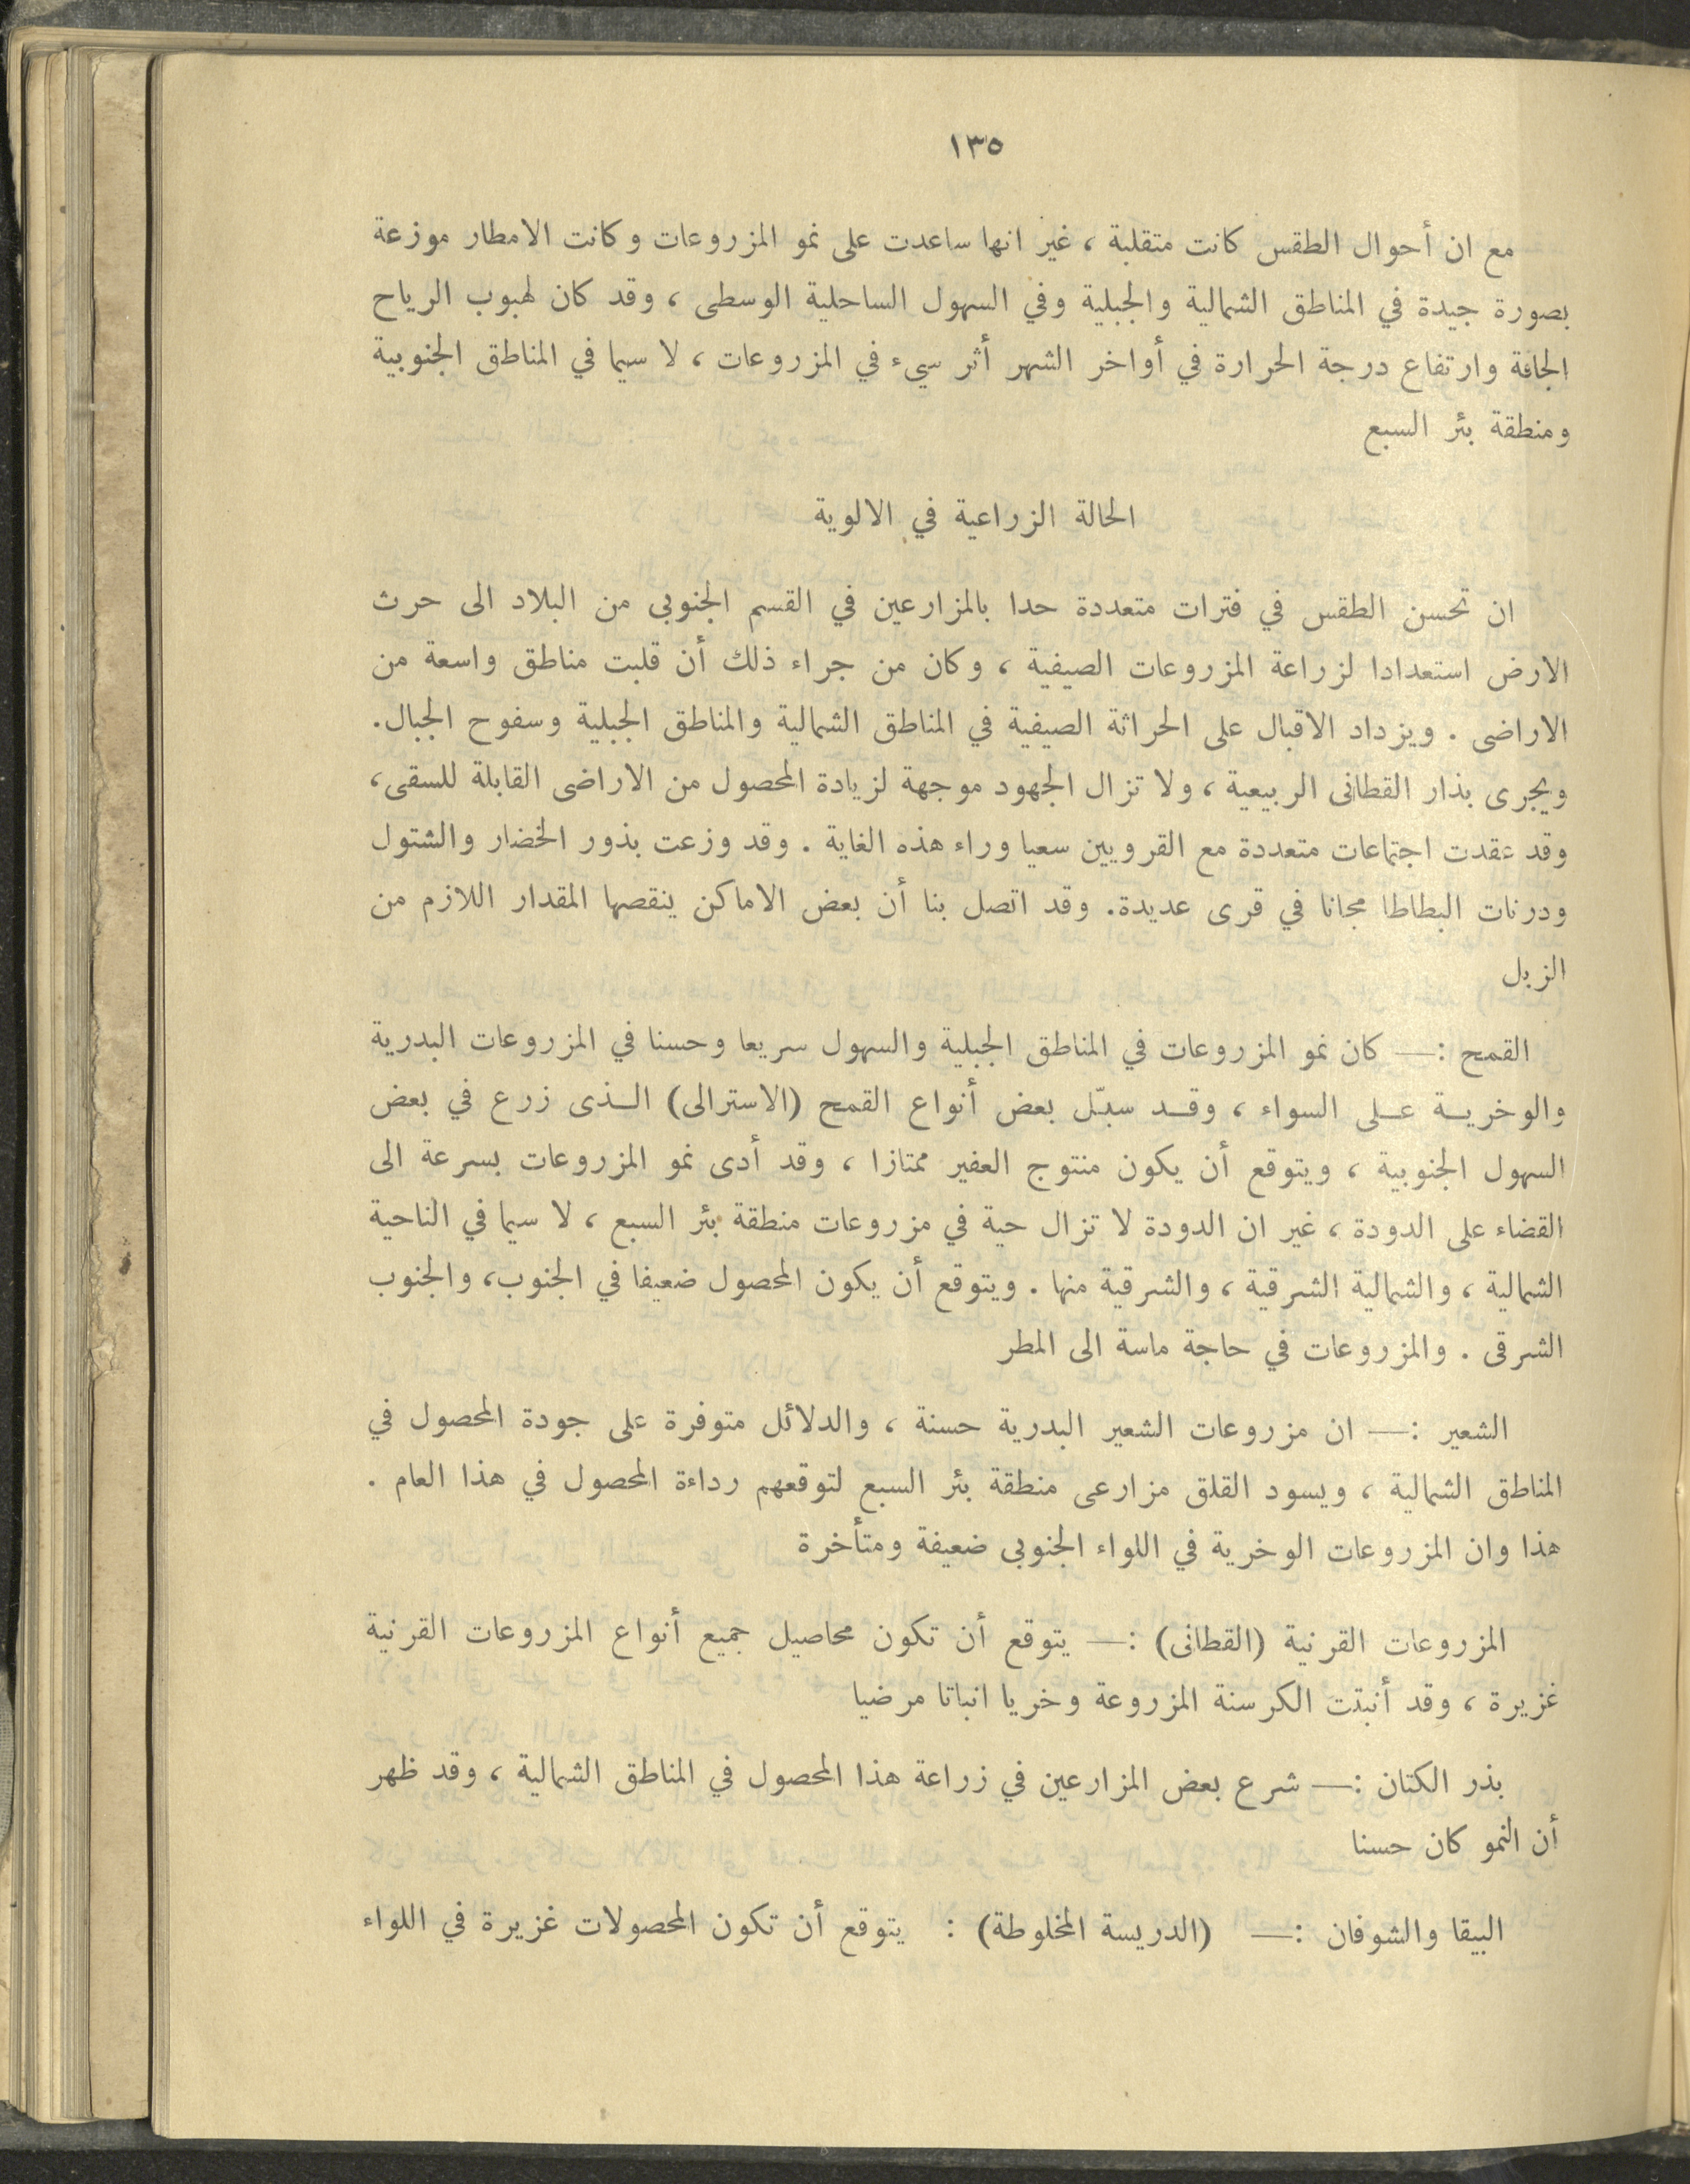 ١٣٥
مع ان أحوال الطقس كانت متقلبة ، غير انها ساعدت على نمو المزروعات وكانت الامطار موزعة
بصورة جيدة في المناطق الشمالية والجبلية وفي السهول الساحلية الوسطى ، وقد كان لهبوب الرياح
الجافة وارتفاع درجة الحرارة في أواخر الشهر أثر سيء في المزروعات ، لا سيما في المناطق الجنوبية
ومنطقة بئر السبع
الحالة الزراعية في الالوية
ان تحسن الطقس في فترات متعددة حدا بالمزارعين في القسم الجنوبى من البلاد الى حرث
الارض استعدادا لزراعة المزروعات الصيفية ، وكان من جراء ذلك أن قلبت مناطق واسعة من
الاراضى . ويزداد الاقبال على الحراثة الصيفية في المناطق الشمالية والمناطق الجبلية وسفوح الجبال.
ويجرى بذار القطانى الربيعية ، ولا تزال الجهود موجهة لزيادة المحصول من الاراضى القابلة للسقى،
وقد عقدت اجتماعات متعددة مع القرويين سعيا وراء هذه الغاية . وقد وزعت بذور الخضار والشتول
ودرنات البطاطا مجانا في قرى عديدة. وقد اتصل بنا أن بعض الاماكن ينقصها المقدار اللازم من
الزبل
القمح :— كان نمو المزروعات في المناطق الجبلية والسهول سريعا وحسنا في المزروعات البدرية
والوخريـة عـلى السواء ، وقـد سبّل بعض أنواع القمح (الاسترالى) الـذى زرع في بعض
السهول الجنوبية ، ويتوقع أن يكون منتوج العفير ممتازا ، وقد أدى نمو المزروعات بسرعة الى
القضاء على الدودة ، غير ان الدودة لا تزال حية في مزروعات منطقة بئر السبع ، لا سيما في الناحية
الشمالية ، والشمالية الشرقية ، والشرقية منها . ويتوقع أن يكون المحصول ضعيفا في الجنوب، والجنوب
الشرقى . والمزروعات في حاجة ماسة الى المطر
الشعير :— ان مزروعات الشعير البدرية حسنة ، والدلائل متوفرة على جودة المحصول في
المناطق الشمالية ، ويسود القلق مزارعى منطقة بئر السبع لتوقعهم رداءة المحصول في هذا العام .
هذا وان المزروعات الوخرية في اللواء الجنوبى ضعيفة ومتأخرة
المزروعات القرنية (القطانى) :— يتوقع أن تكون محاصيل جميع أنواع المزروعات القرنية
غزيرة ، وقد أنبتت الكرسنة المزروعة وخريا انباتا مرضيا
بذر الكتان :— شرع بعض المزارعين في زراعة هذا المحصول في المناطق الشمالية ، وقد ظهر
أن النمو كان حسنا
البيقا والشوفان :— (الدريسة المخلوطة) : يتوقع أن تكون المحصولات غزيرة في اللواء